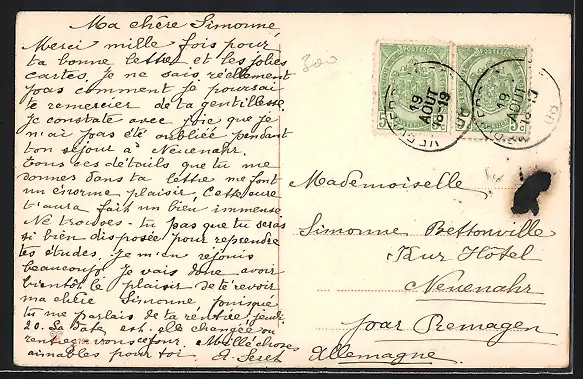 Ma chère Simonne
Merci mille fois pour
ta bonne lettre et les jolies
cartes. Je ne sais réellement
pas comment je pourrai
te remercier de ta gentillesse.
Je constate avec joie que je
n'ai pas été oubliée pendant
ton séjour à Neuenahr.
Tous ces détails que tu me
donnes dans ta lettre me font
un énorme plaisir. Cette cure
t'aura fait un bien immense
Ne trouves-tu pas que tu seras
si bien disposée pour reprendre
tes études. Je m'en réjouis
beaucoup. Je vais donc avoir
bientôt le plaisir de te revoir
ma chère Simonne puisque
tu me parles de ta rentrée jeudi
20. La date est-elle changée ou
rentrerons ce jour. Mille choses
aimables pour toi
300
POSTES
POSTES
19
AOUT
18-19
19
AOUT
18-19
Mademoiselle
Simonne Bettonville
Kur Hôtel
Neuenahr
par Remagen
Allemagne